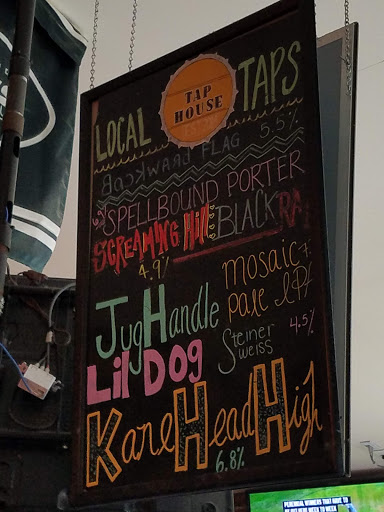 LOCAL TAP HOUSE TAPS
Backward FLAG 5.5%
SPELLBOUND PORTER
SCREAMING Hill BLACK RA
4.9%
mosaic
JugHandle pale IPA
Steiner weiss 4.5%
Lil DOG
KaneHeadHigh
6.8%